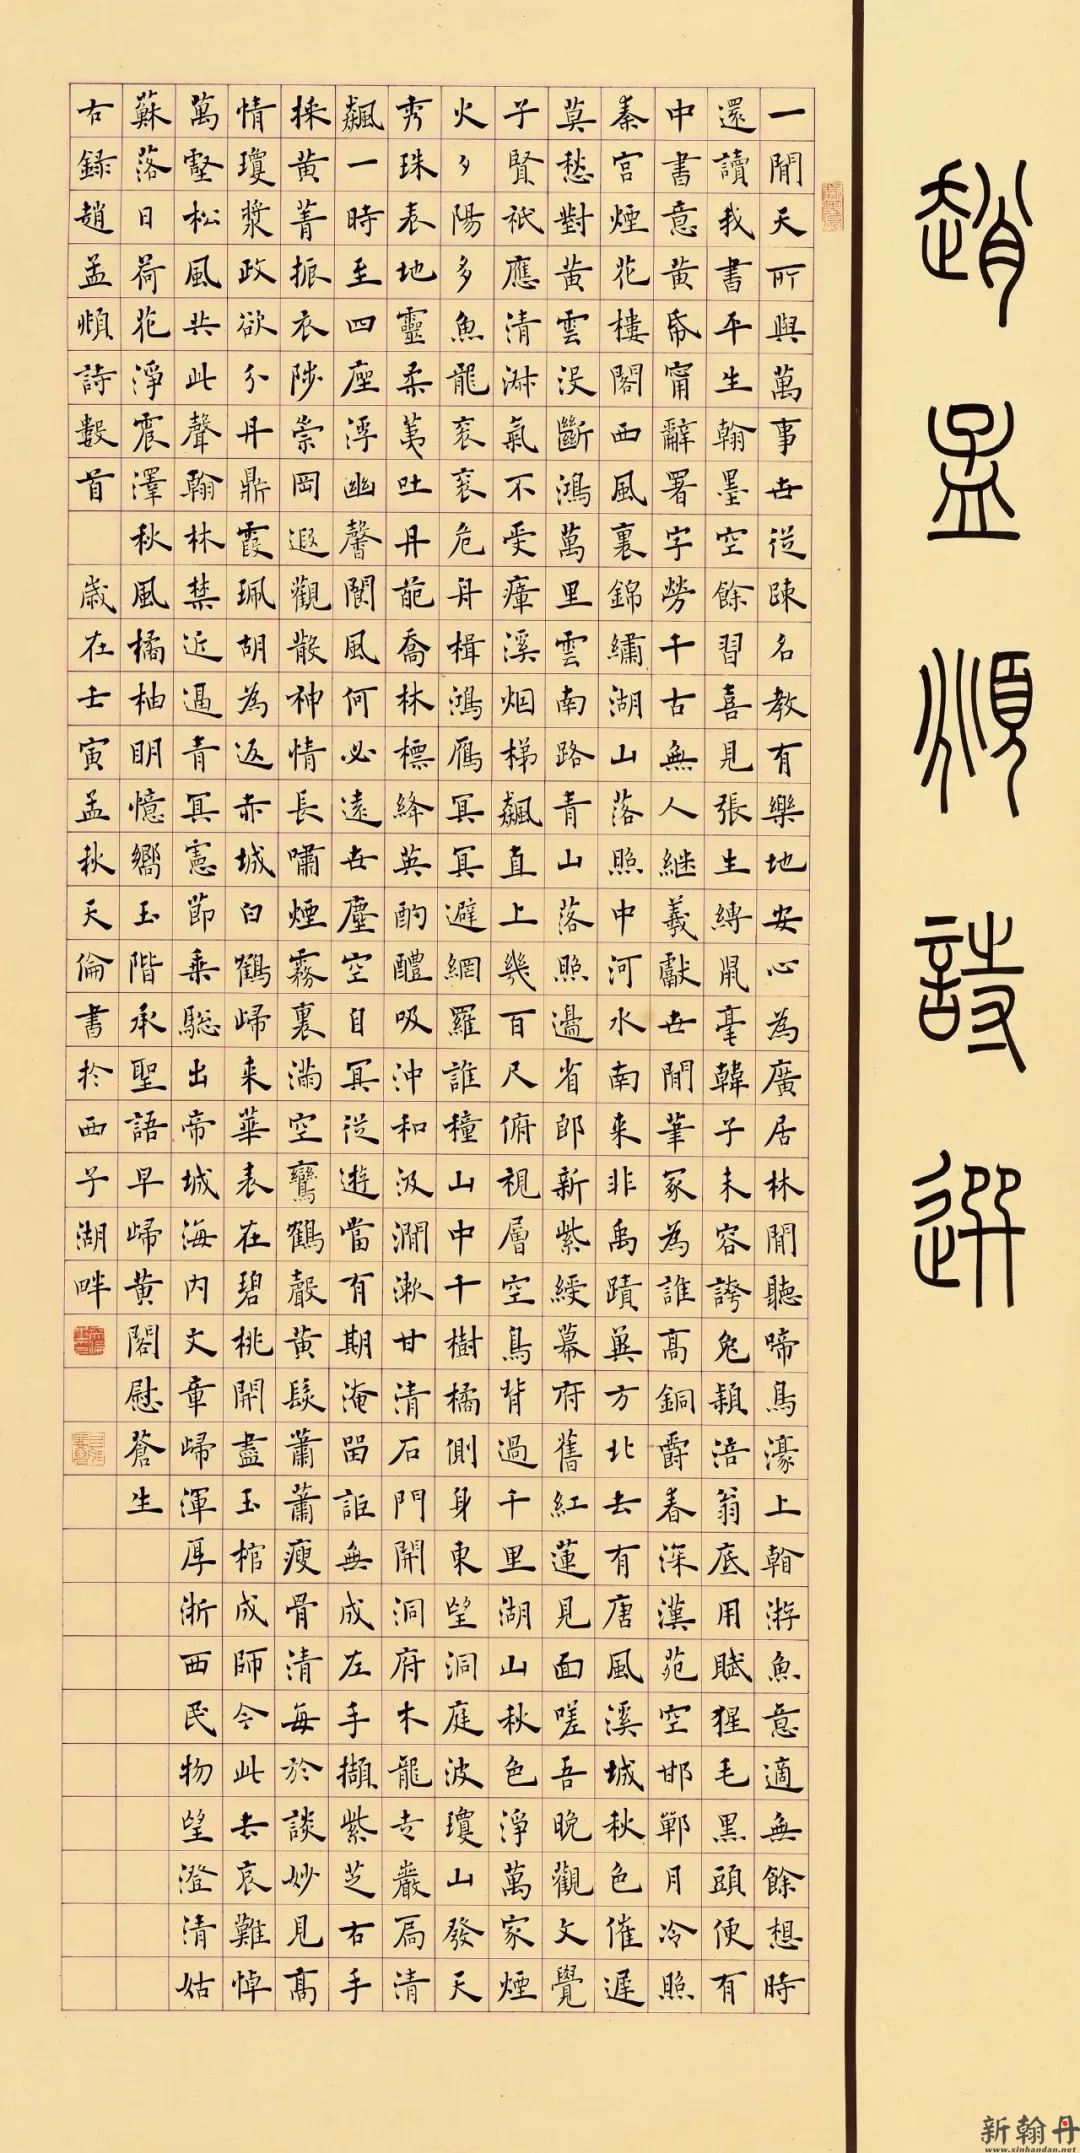 趙孟頫詩選
一閒天所與萬事世從踈名教有樂地安心為廣居林閒聽啼鳥濠上翰游魚意適無餘想時
還讀我書平生翰墨空餘習喜見張生縛鼠毫韓子未容誇兔穎涪翁底用賦猩毛黑頭便有
中書意黃昏甯辭署字勞千古無人繼羲獻世閒筆冢為誰高銅爵春深漢苑空邯鄲月冷照
秦宮煙花樓閣西風裏錦繡湖山落照中河水南來非禹蹟冀方北去有唐風溪城秋色催遲
莫愁對黃雲沒斷鴻萬里雲南路青山落照邊省郎新紫綬幕府舊紅蓮見面嗟吾晚觀文覺
子賢祇應清淋氣不受瘴溪烟梯飆直上幾百尺俯視層空鳥背過千里湖山秋色淨萬家煙
火夕陽多魚龍袞袞危舟楫鴻雁冥冥避網羅誰種山中千樹橘側身東望洞庭波瓊山發天
秀珠表地靈柔荑吐丹葩喬林標絳英酌醴吸沖和汲澗漱甘清石門開洞府木龍嚴扃清
飆一時至四座浮幽馨閬風何必遠世塵空自冥從遊當有期淹留詎無成左手擷紫芝右手
採黃菁振衣陟崇岡遐觀散神情長嘯煙霧裏滿空鸞鶴聲黃髮蕭蕭瘦骨清每於談妙見高
情瓊漿政欲分丹鼎霞珮胡為返赤城白鶴歸來華表在碧桃開盡玉棺成師今此去哀難悼
萬壑松風共此聲翰林禁近逼青冥憲節乘驄出帝城海內文章歸渾厚浙西民物望澄清姑
蘇落日荷花淨震澤秋風橘柚明憶嚮玉階承聖語早歸黃閣慰蒼生
右錄趙孟頫詩數首 歲在壬寅孟秋天倫書於西子湖畔
新翰丹
www.xinhandan.net